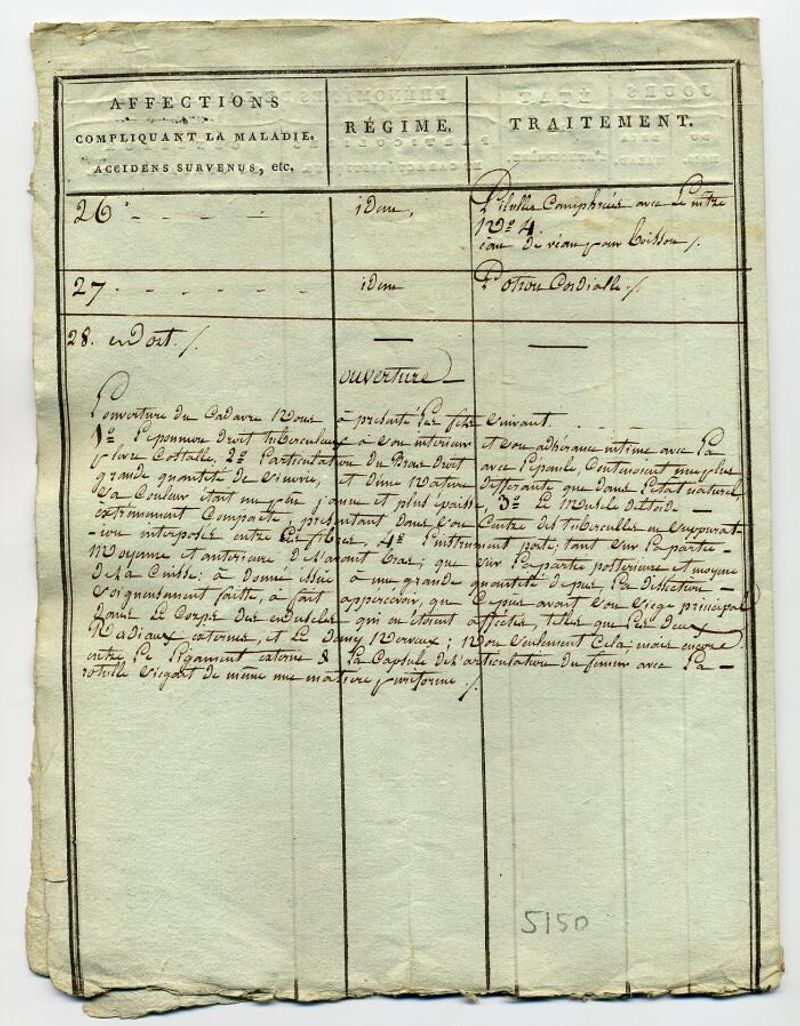 AFFECTIONS
COMPLIQUANT LA MALADIE,
ACCIDENS SURVENUS, etc.
RÉGIME.
TRAITEMENT.
26. idem, Pilulles Camphrées avec Le nitre
No 4
eau de veau pour boisson /.
27. idem Potion Cordialle /.
28. Mort /.
ouverture
L'ouverture du Cadavre Nous à présenté Les faits suivant.
1o Le poumon droit tuberculeux à son interieur et son adhérance intime avec La
plevre Costalle, 2o L'articulation du Bras Droit avec L'épaule, Contenoient une plus
grande quantité de sinovie, et d'une Nature differante que dans L'etat naturel,
Sa Couleur étant un peu jaune et plus épaisse, 3o Le Muscle deltoide
extrêmement Compacte, présentant dans son Centre des tubercules en suppurat-
-ion interposés entre Les fibres, 4o L'instrument porté, tant sur La partie
Moyenne et anterieure de L'avant bras, que sur La partie posterieure et moyene
de La Cuisse: à donné issue à une grande quantité de pus, La dissection
Soigneusement faitte, à fait appercevoir, que Le pus avoit son siege principal
dans Le Corps des muscles qui en étoient affectés, telles que Les deux
Radiaux externes, et Le Demy Nerveux; Non seulement Cela, mais encore
entre Le Ligament externe & La Capsule de L'articulation du femur avec La
rotulle siegoit de même une matiere puriforme /.
5150